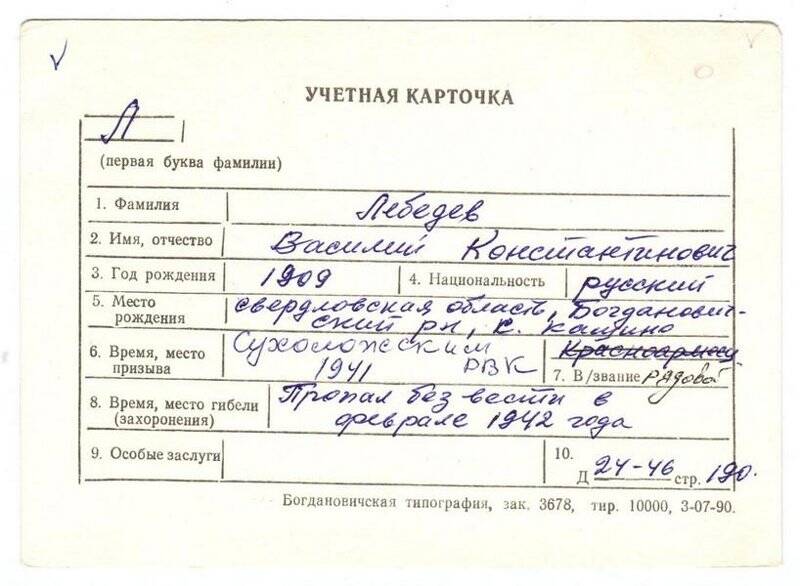 УЧЕТНАЯ КАРТОЧКА
Л
(первая буква фамилии)
1. Фамилия Лебедев
2. Имя, отчество Василий Константинович
3. Год рождения 1909 4. Национальность русский
5. Место рождения свердловская область, Богданович-
ский рн, с. Кашино
6. Время, место призыва Сухоложским РВК 1941
Красноармеец
7. В/звание рядовой
8. Время, место гибели (захоронения) Пропал без вести в
феврале 1942 года
9. Особые заслуги
10.
Д 24-46 стр. 190.
Богдановичская типография, зак. 3678, тир. 10000, 3-07-90.